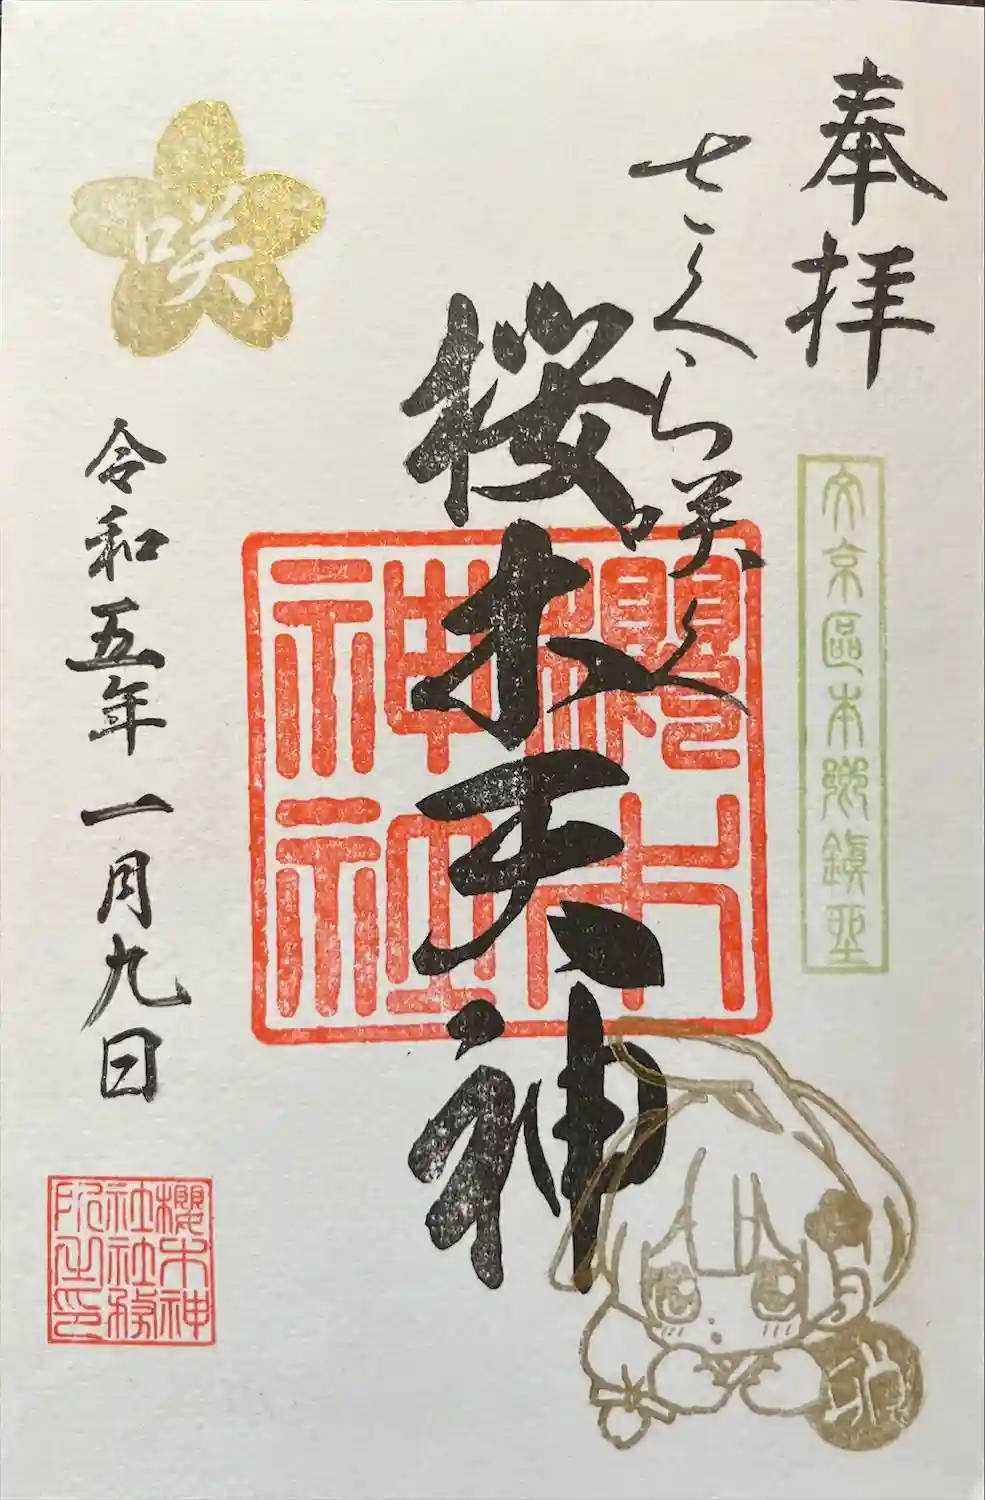 奉拝
文京區本郷鎮座
さくら咲く
桜木天神
櫻木神社
咲
令和五年一月九日
櫻木神社社務所之印